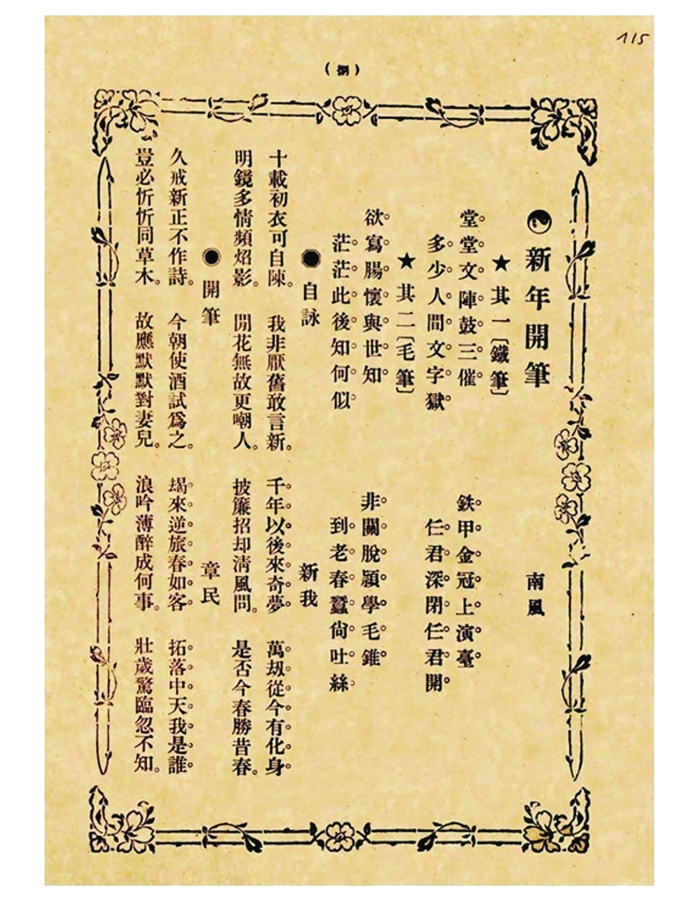 115
（捌）
新年開筆 南風
★其一〔鐵筆〕
堂堂文陣鼓三催 鉄甲金冠上演臺
多少人間文字獄 仁君深閉仁君開
★其二〔毛筆〕
欲寫腸懷與世知 非關脫穎學毛錐
茫茫此後知何似 到老春蠶尙吐絲
●自詠 新我
十載初衣可自陳。我非厭舊敢言新。千年以後來奇夢 萬劫從今有化身
明鏡多情頻炤影。閒花無故更嘲人。披簾招却清風問。是否今春勝昔春。
●開筆 章民
久戒新正不作詩。今朝使酒試爲之。朅來逆旅春如客 拓落中天我是誰
豈必忻忻同草木。故應默默對妻兒。浪吟薄醉成何事。壯歲驚臨忽不知。